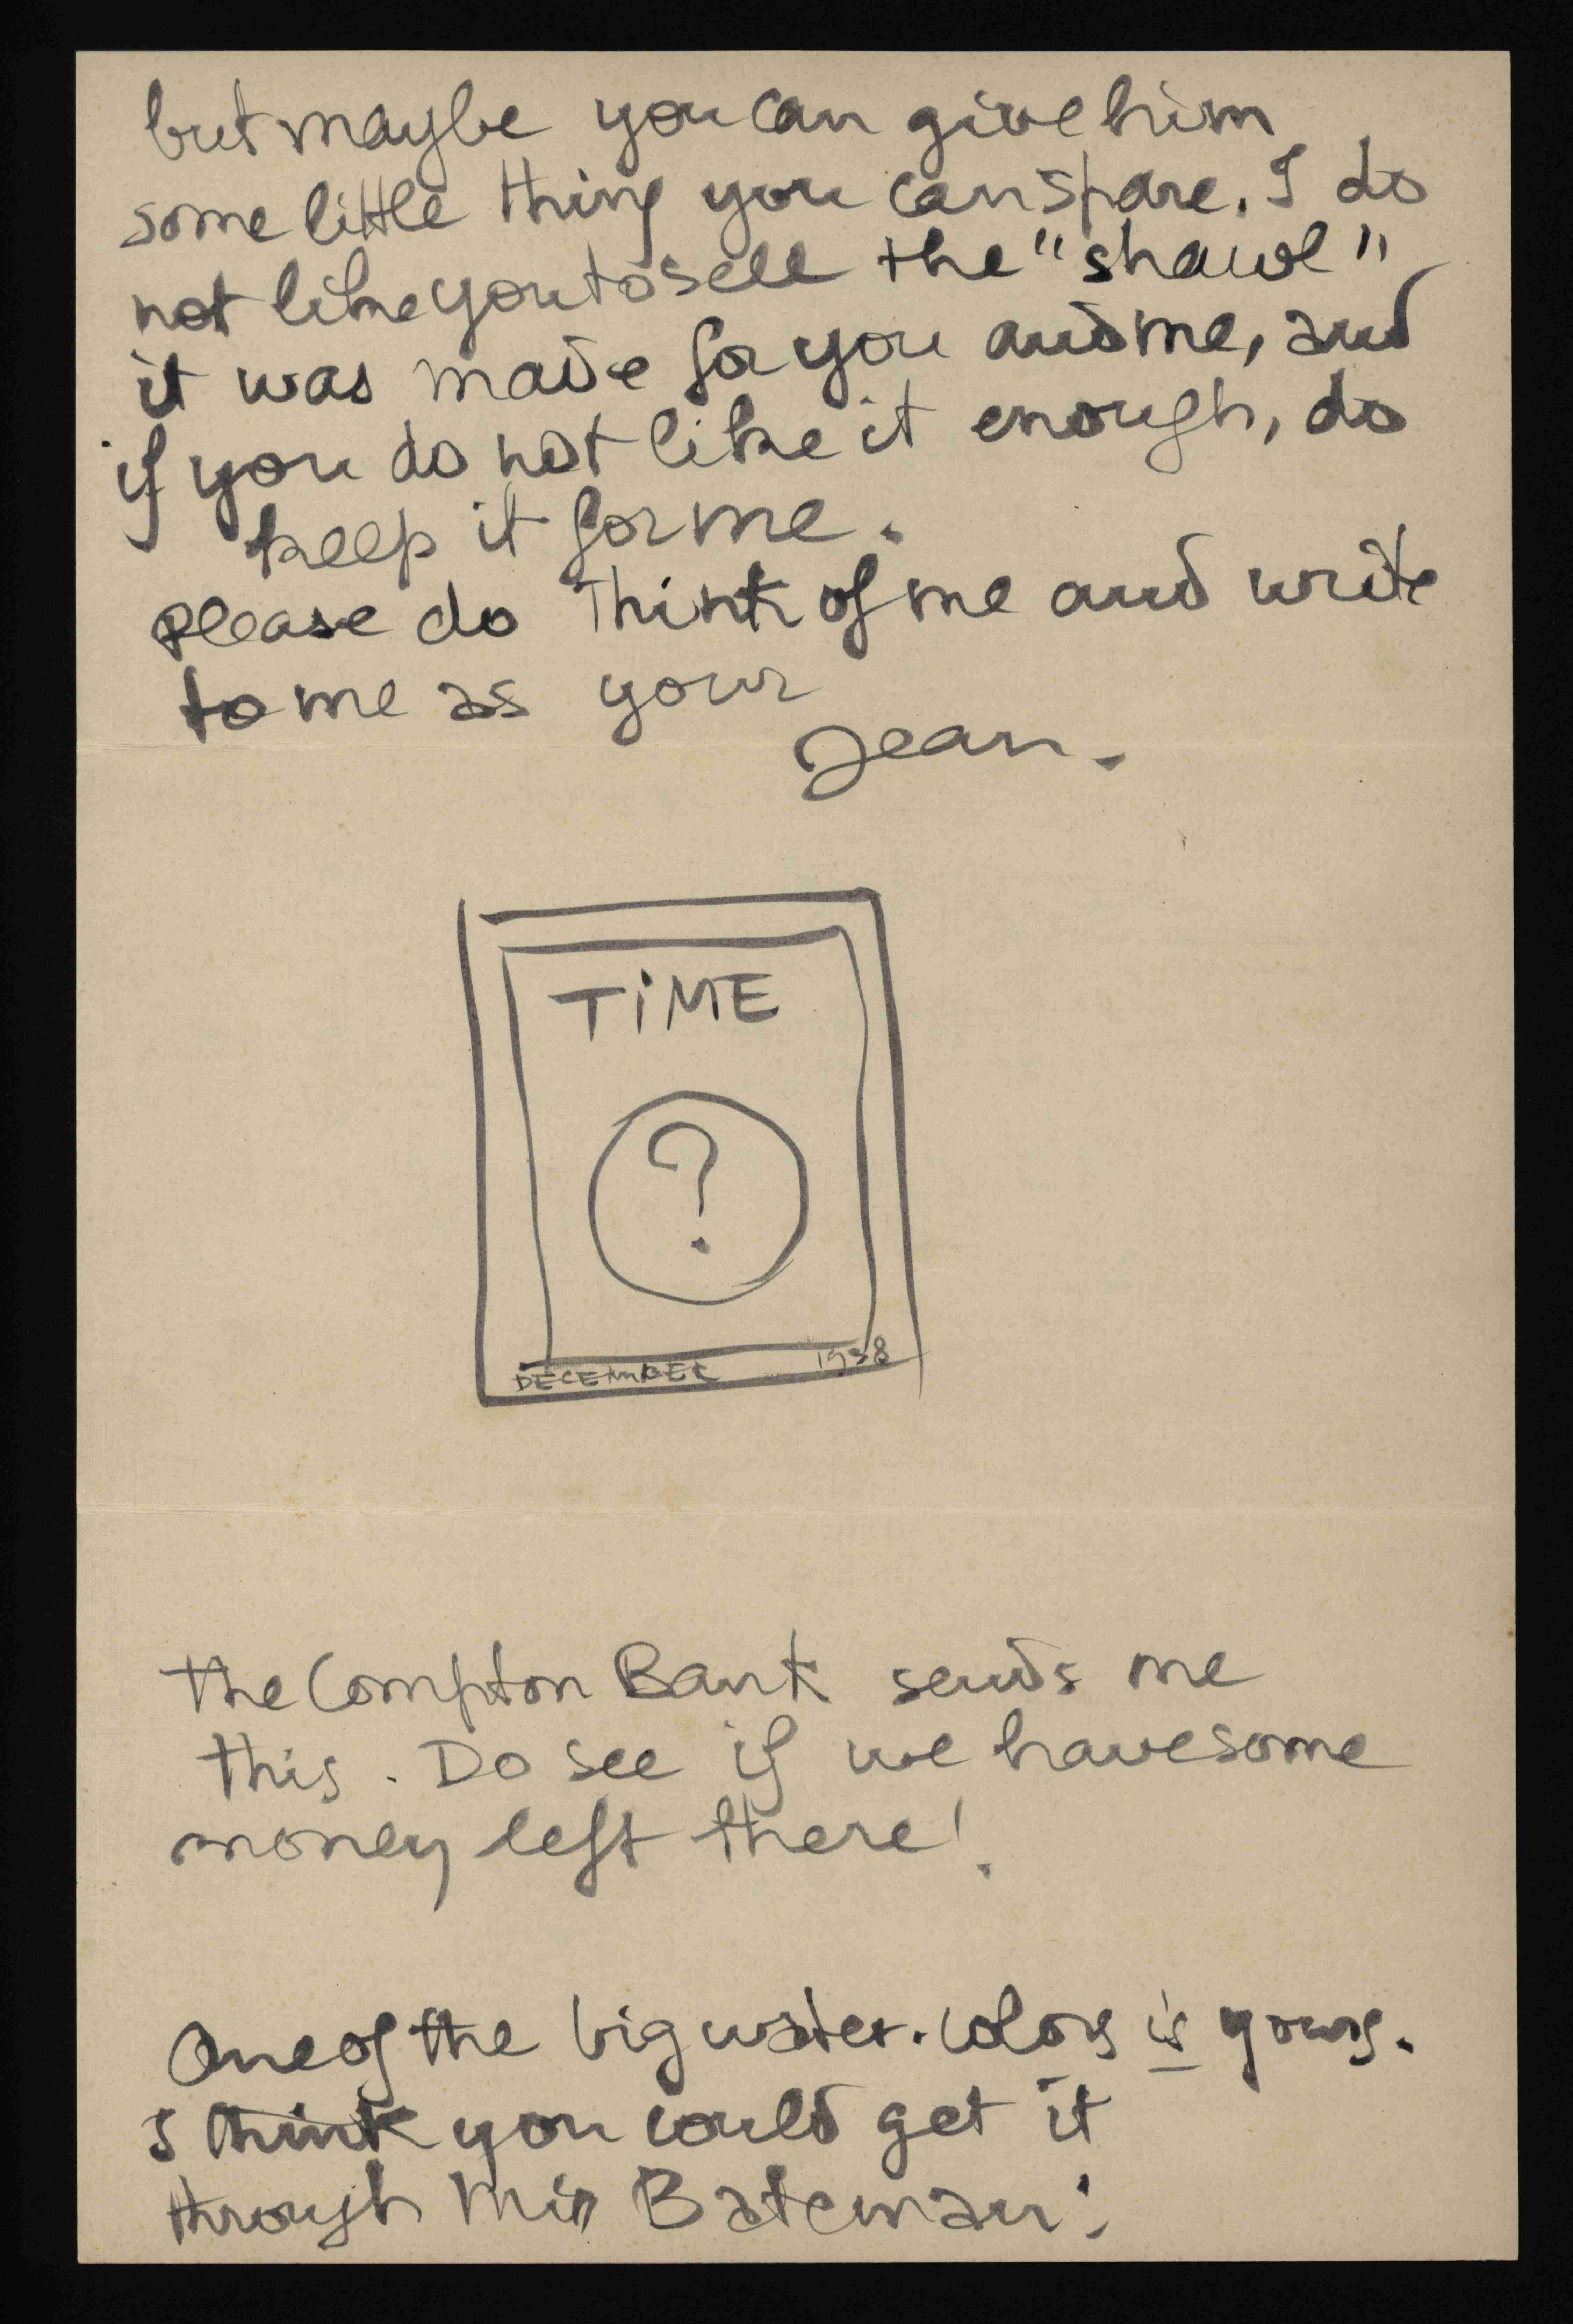 but maybe you can give him
some little thing you can spare. I do
not like you to sell the "shawl"
it was made for you and me, and
if you do not like it enough, do
keep it for me.
please do think of me and write
to me as your
Jean.
TiME
?
DECEMBER 1938
the Compton Bank sends me
this. Do see if we have some
money left there!
One of the big water-colors is yours.
I think you could get it
through Miss Bateman!